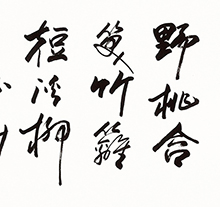 野桃含
笑竹籬
短溪柳